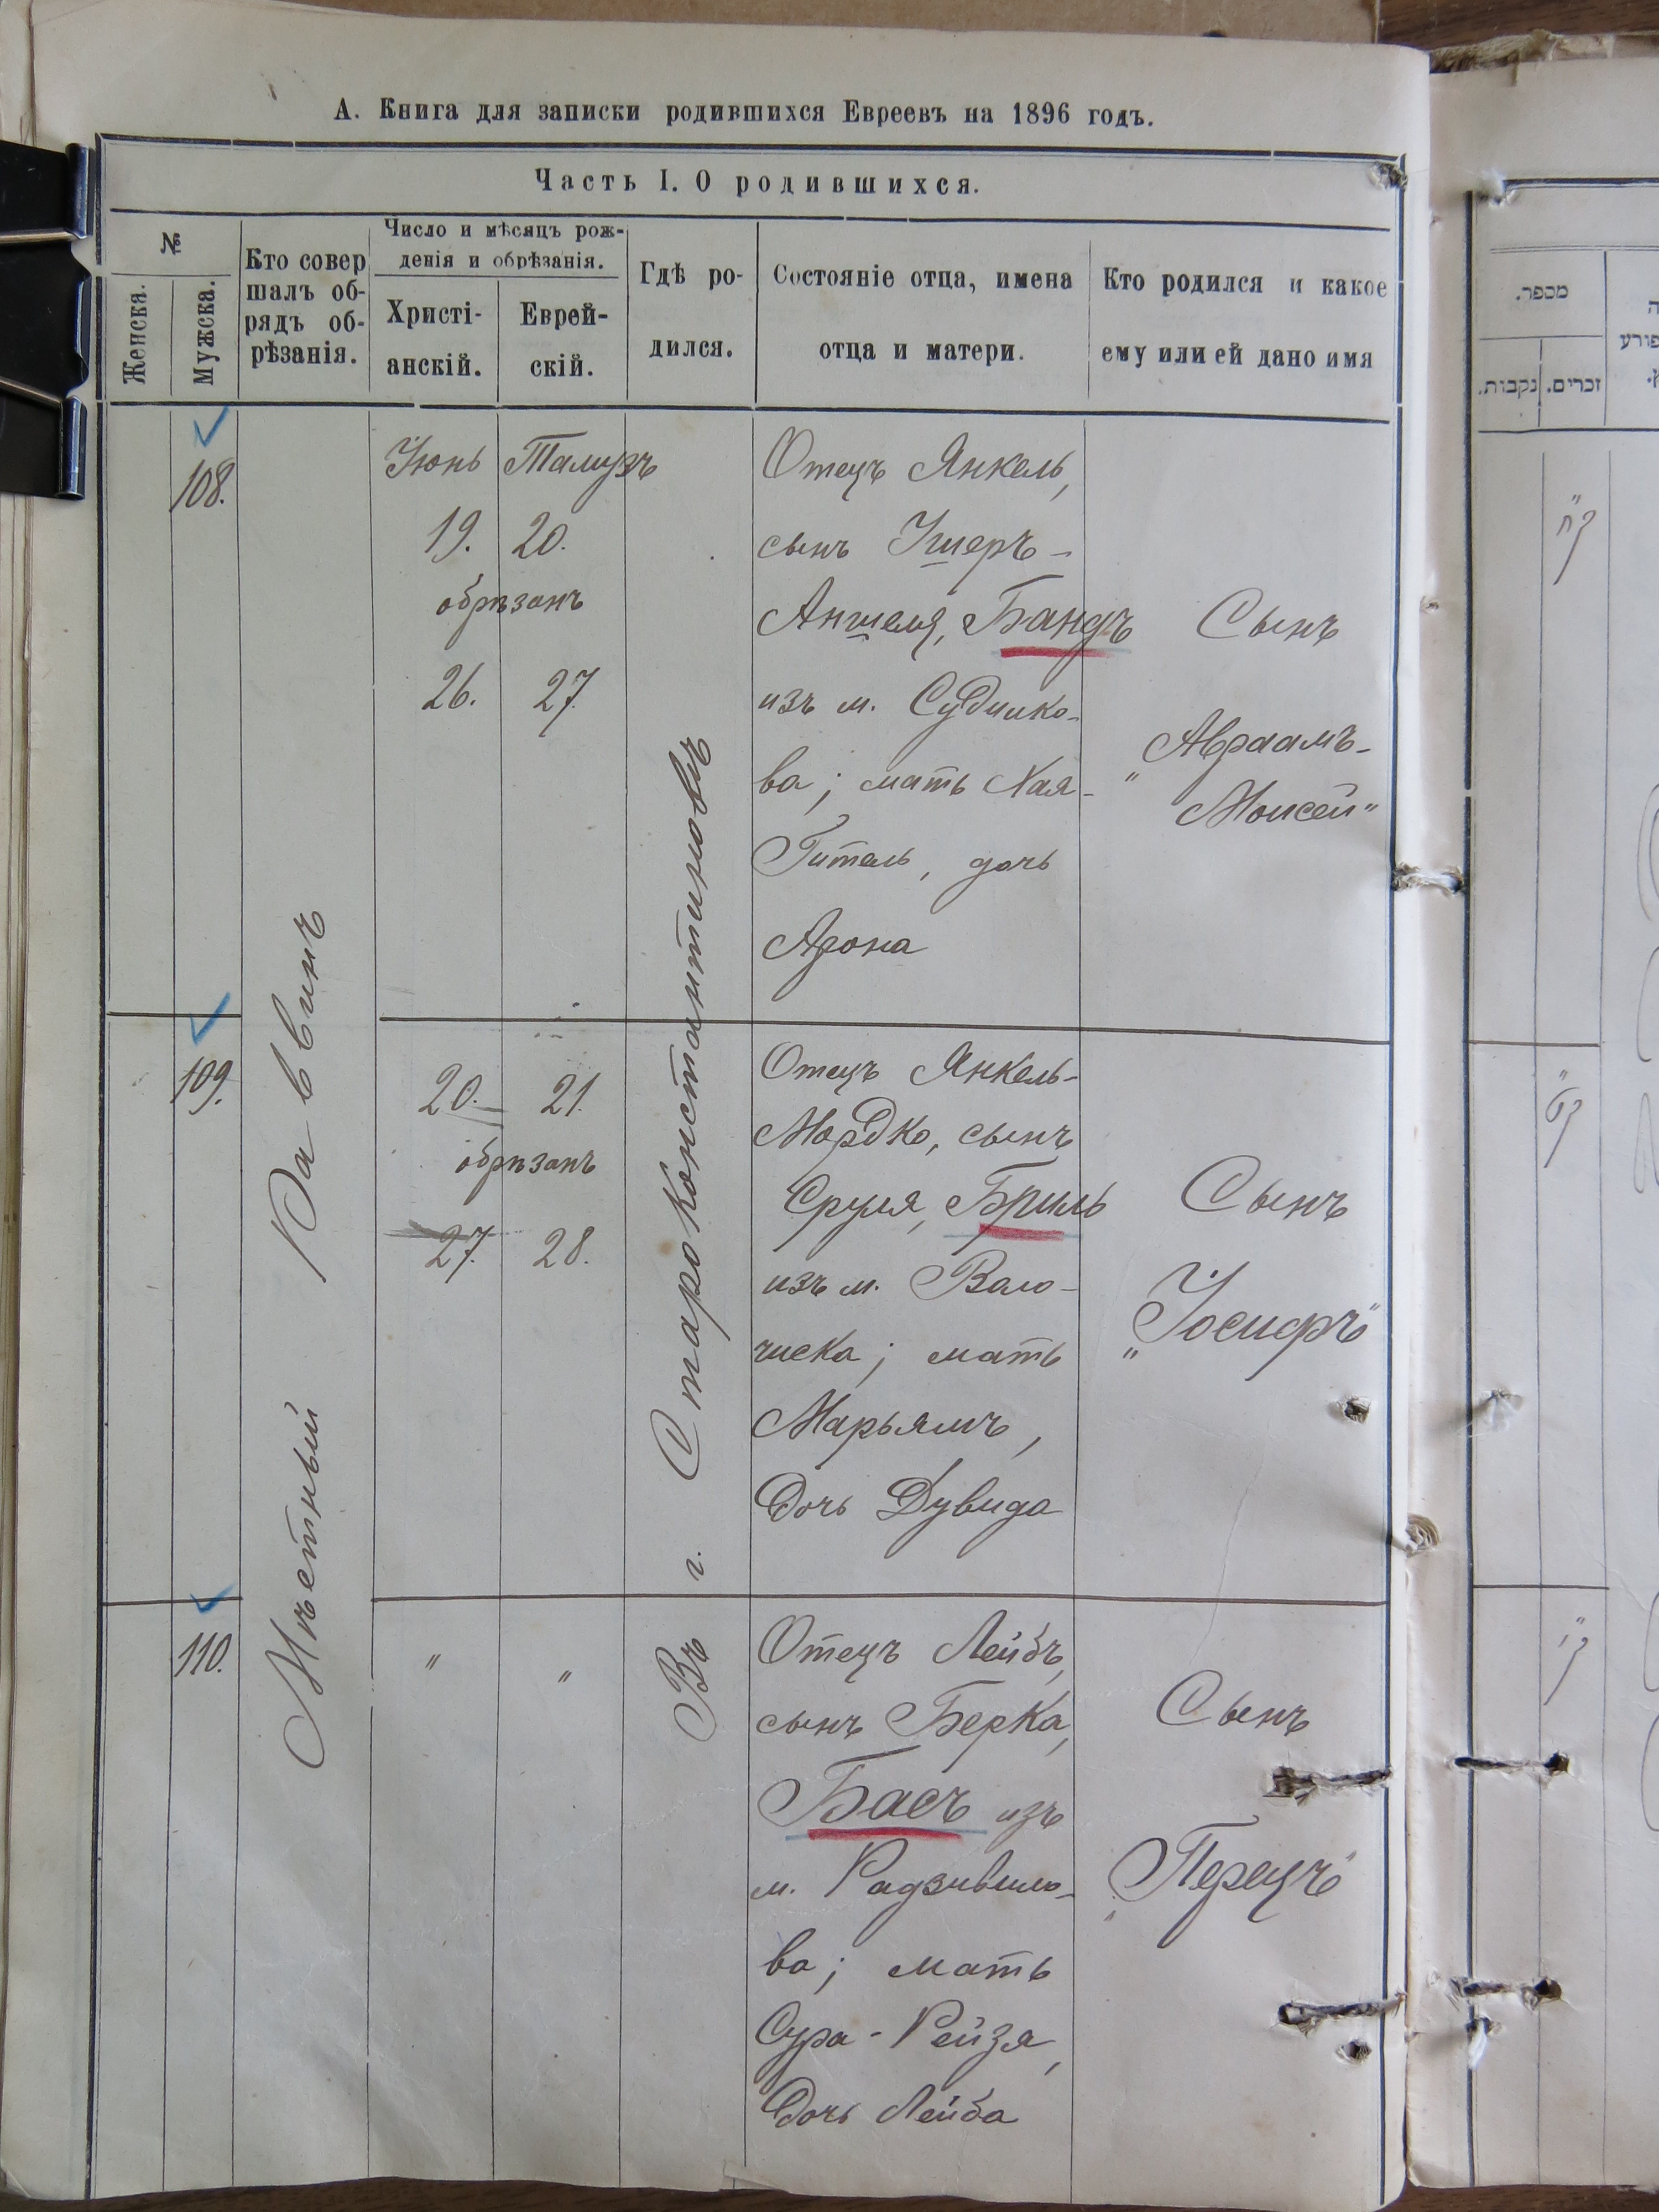 А. Книга для записки родившихся Евреевъ на 1896 годъ.
Часть I. О родившихся.
№
Женска.
Мужска.
Кто совер
шалъ об-
рядъ об-
рѣзанія.
Число и мѣсяцъ рож-
денія и обрѣзанія.
Христі-
анскій.
Еврей-
скій.
Гдѣ ро-
дился.
Состояніе отца, имена
отца и матери.
Кто родился и какое
ему или ей дано имя
Мѣстный Раввинъ
Въ г. Староконстантиновѣ
108.
Іюнь Тамузъ
19. 20.
обрѣзанъ
26. 27.
Отецъ Янкель,
сынъ Ушеръ-
Аншеля, Бандъ
изъ м. Судилко-
ва; мать Хая-
Гитель, дочь
Арона
Сынъ
„Авраамъ-
Моисей"
109.
20. 21.
обрѣзанъ
27. 28.
Отецъ Янкель-
Мордко, сынъ
Сруля, Бриль
изъ м. Воло-
чиска; мать
Марьямъ,
дочь Дувида
Сынъ
„Іосифъ"
110.
" "
Отецъ Лейбъ,
сынъ Берка,
Басъ изъ
м. Радзивило-
ва; мать
Сура-Рейзя,
дочь Лейба
Сынъ
„Перецъ"
מספר.
נקבות.
זכרים.
ק״ח
ק״ט
ק״י